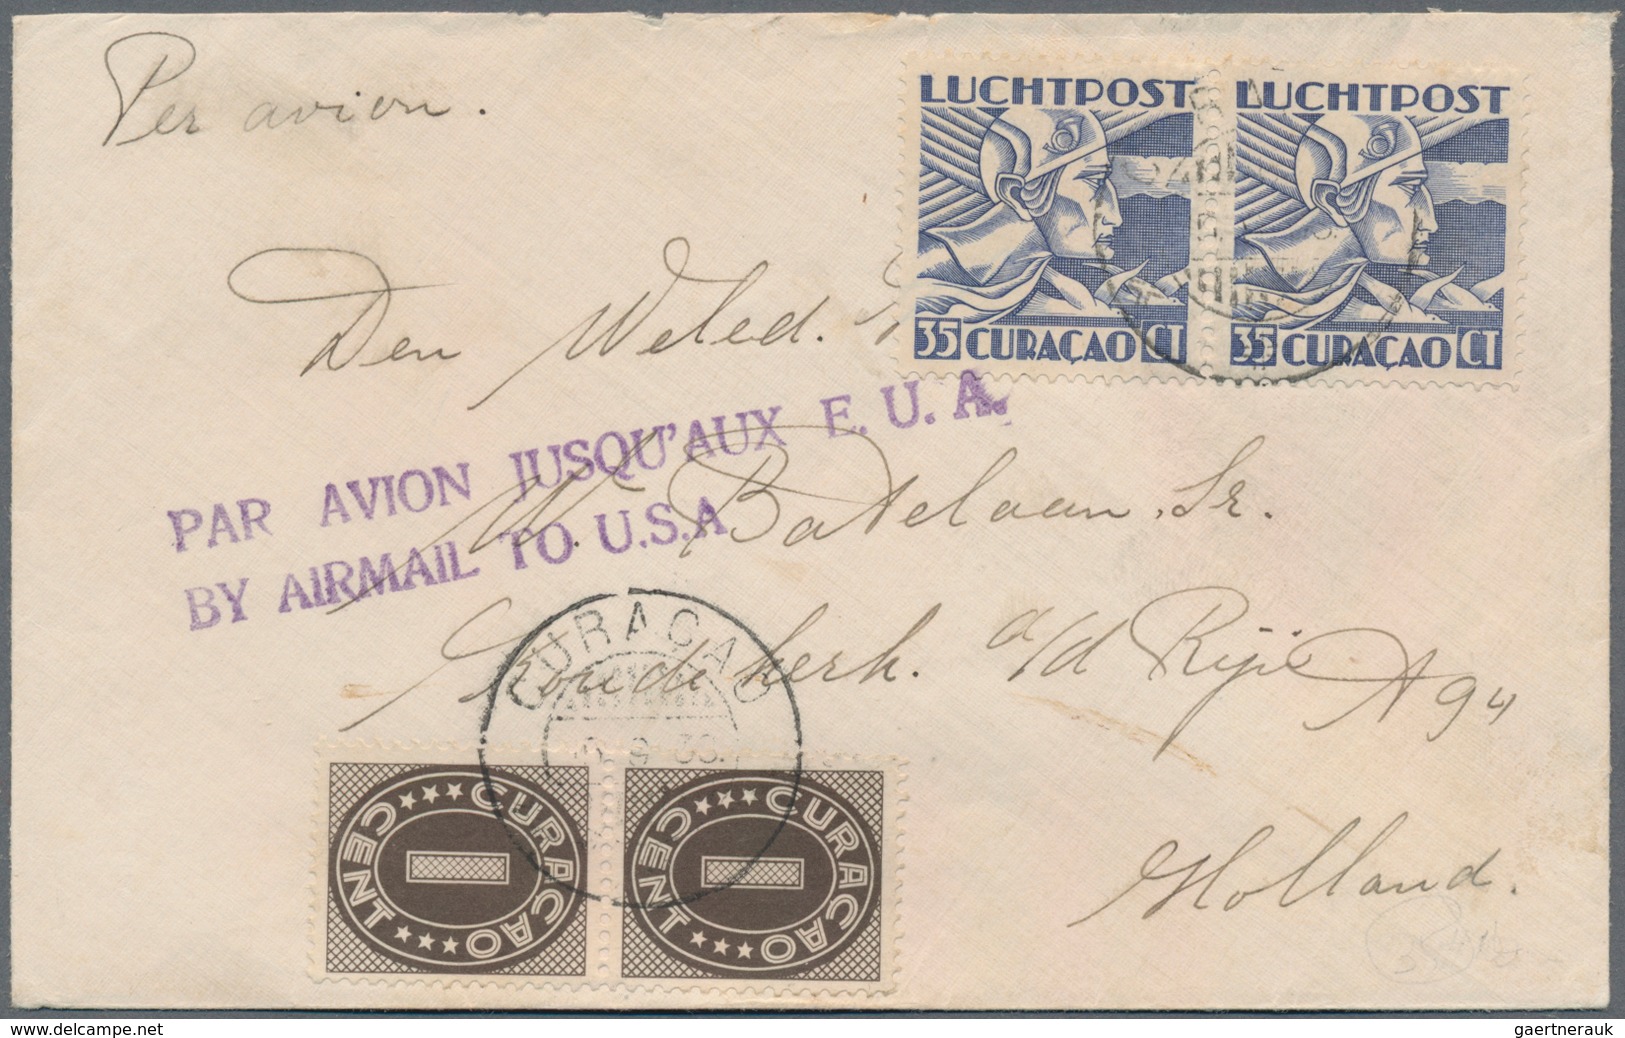 Per avion.
LUCHTPOST LUCHTPOST
35 CURAÇAO CT 35 CURAÇAO CT
Den Weled.
PAR AVION JUSQU'AUX E. U. A.
BY AIRMAIL TO U.S.A
W. Batelaan, Sr.
Koudekerk. a/d Rijn A 94
CURACAO
9
CURAÇAO CENT CURAÇAO CENT
1 1
Holland.
www.delcampe.net
gaertnerauk